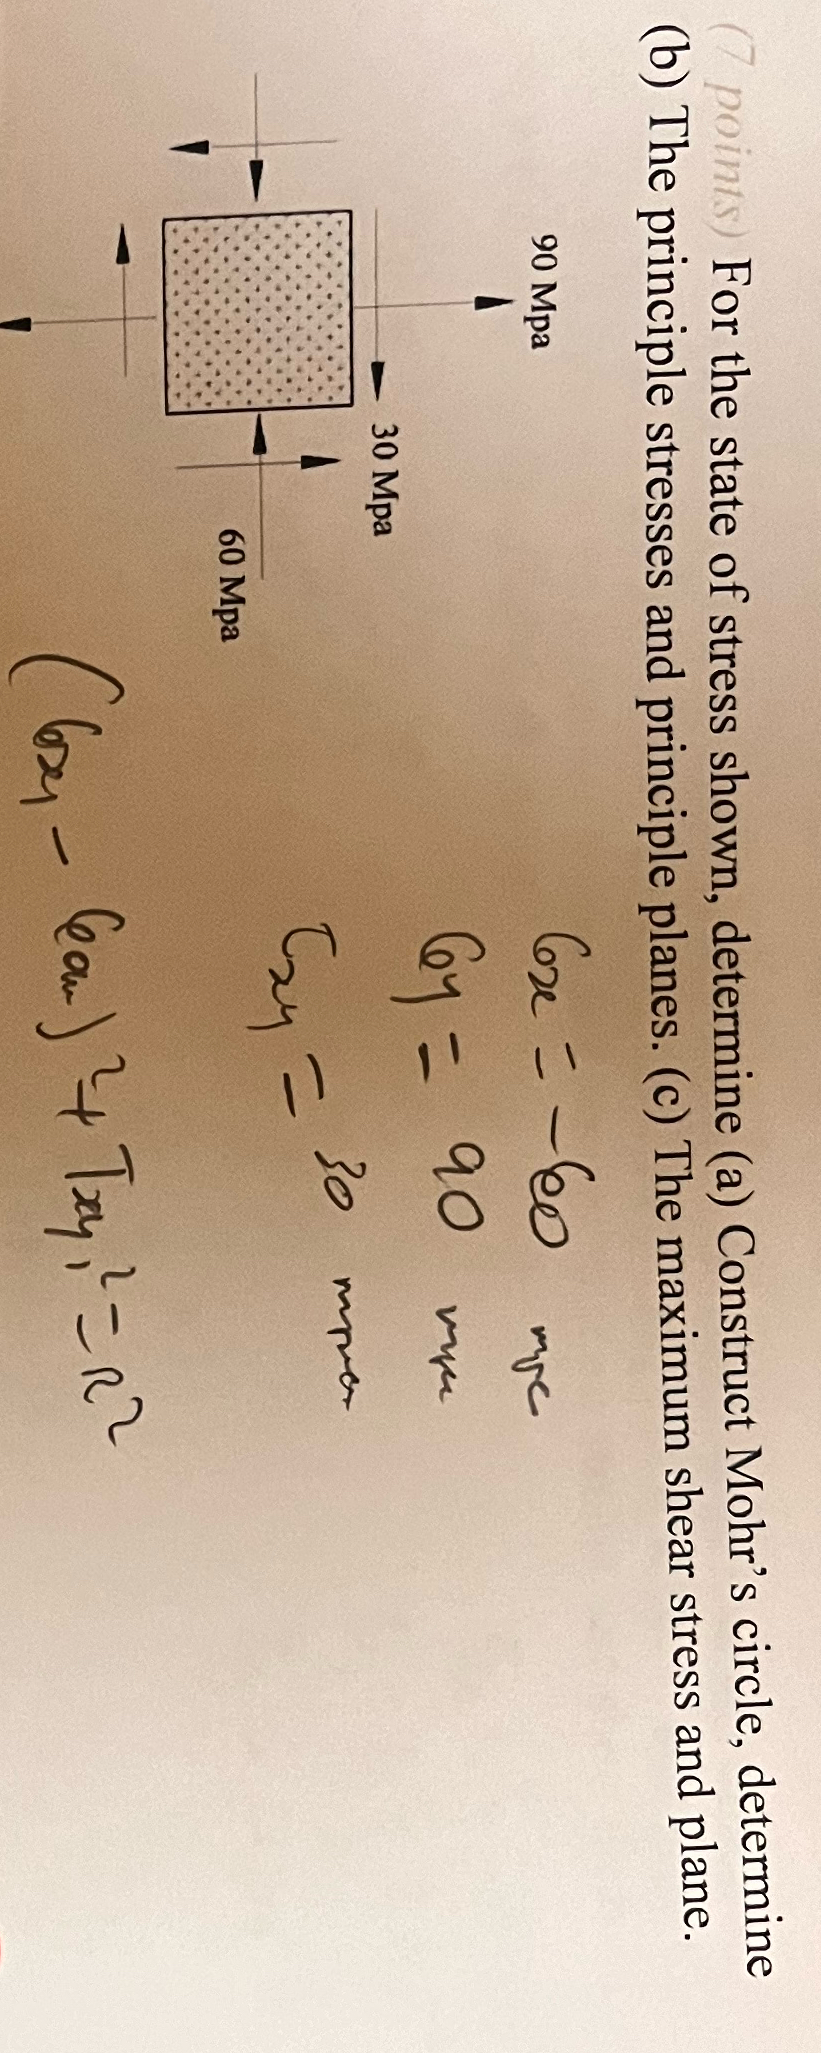 (7 points) For the state of stress shown, determine (a) Construct Mohr's circle, determine
(b) The principle stresses and principle planes. (c) The maximum shear stress and plane.
90 Mpa
30 Mpa
60 Mpa
σx = -60
σy = 90
τxy = 30
)² + τxy₁² = R²